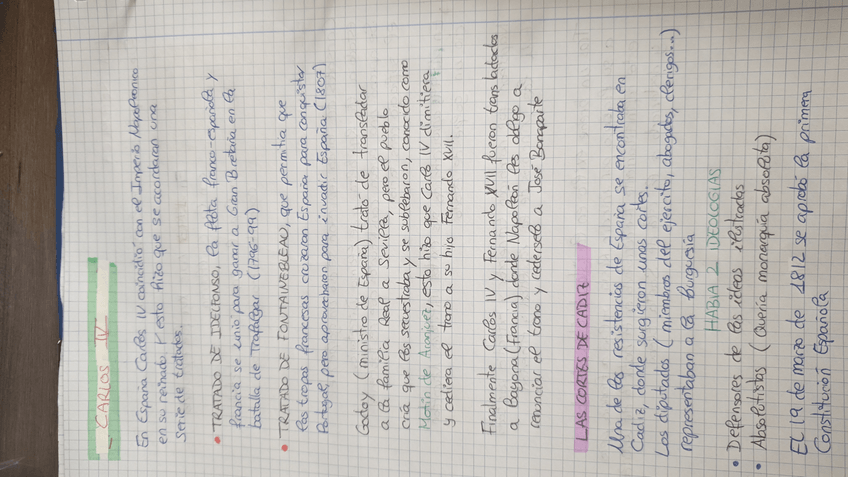 CARLOS IV
En España Carlos IV coincidió con el Imperio Napoleónico
en su reinado y esto hizo que se acordaran una
serie de tratados.
• TRATADO DE IDELFONSO, la flota franco-española y
francia se unio para ganar a Gran Bretaña en la
batalla de Trafalgar (1796-99)
• TRATADO DE FONTAINEBLEAO, que permitía que
las tropas francesas cruzaran España para conquistar
Portugal, pero aprovecharon para invadir España (1807)
Godoy (ministro de España) trató de transladar
a la familia Real a Sevilla, pero el pueblo
creía que los secuestraba y se sublebaron, conocido como
Motín de Aranjuez, esto hizo que Carlos IV dimitiera
y cediera el trono a su hijo Fernando XVII.
Finalmente Carlos IV y Fernando XVII fueron transladados
a Bayona (Francia) donde Napoleón les obligo a
renunciar el trono y cederselo a José Bonaparte
LAS CORTES DE CADIZ
Una de las resistencias de España se encontraba en
Cadiz, donde surgieron unas cortes.
Los diputados (miembros del ejercito, abogados, clerigos...)
representaban a la burguesia
HABIA 2 IDEOLOGIAS
• Defensores de las ideas ilustradas
• Absolutistas (Quería monarquia absoluta)
El 19 de marzo de 1812 se aprobó la primera
Constitución Española